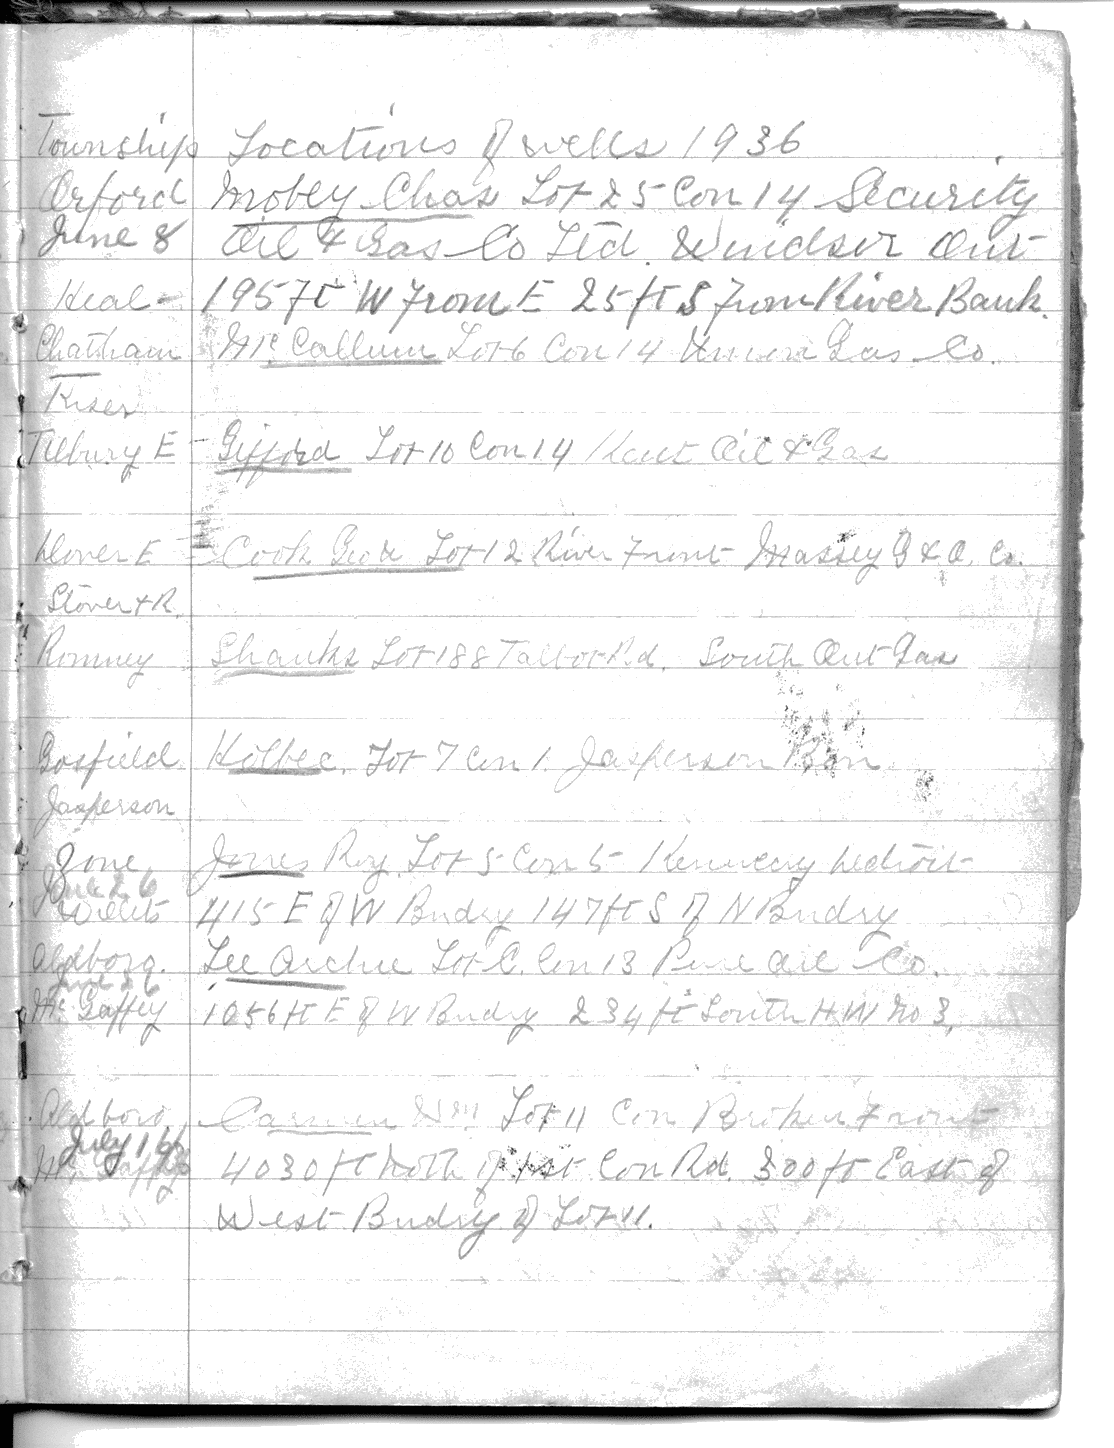 Township Locations of wells 1936
Orford Mobey Chas Lot 25 Con 14 Security
June 8 Oil & Gas Co Ltd. Windsor Ont
Heal - 195 ft W from E 25 ft S from River Bank.
Chatham Mc Callum Lot 6 Con 14 Union Gas Co.
Kiser
Tilbury E - Gifford Lot 10 Con 14 Kent Oil & Gas
Dover E - Cook Geo Lot 12 River Front Massey G & O. Co.
Stover & R.
Romney Shanks Lot 188 Talbot Rd. South Ont Gas
Gosfield Lot 7 Con 1. Jasperson
Jasperson
Zone Jones Roy Lot 5 Con 5 Kennedy Detroit
June 26
Willits 415 E of W Bndry 147 ft S of N Bndry
Aldboro. Lee Archie Lot C. Con 13 Pure Oil Co.
June 26
Mc Gaffey 1056 ft E of W Bndry 234 ft South H W No 3.
Aldboro Carmen Wm Lot 11 Con Broken Front
July 16
Mc Gaffey 4030 ft Noth of 1st Con Rd. 300 ft East of
West Bndry of Lot 11.